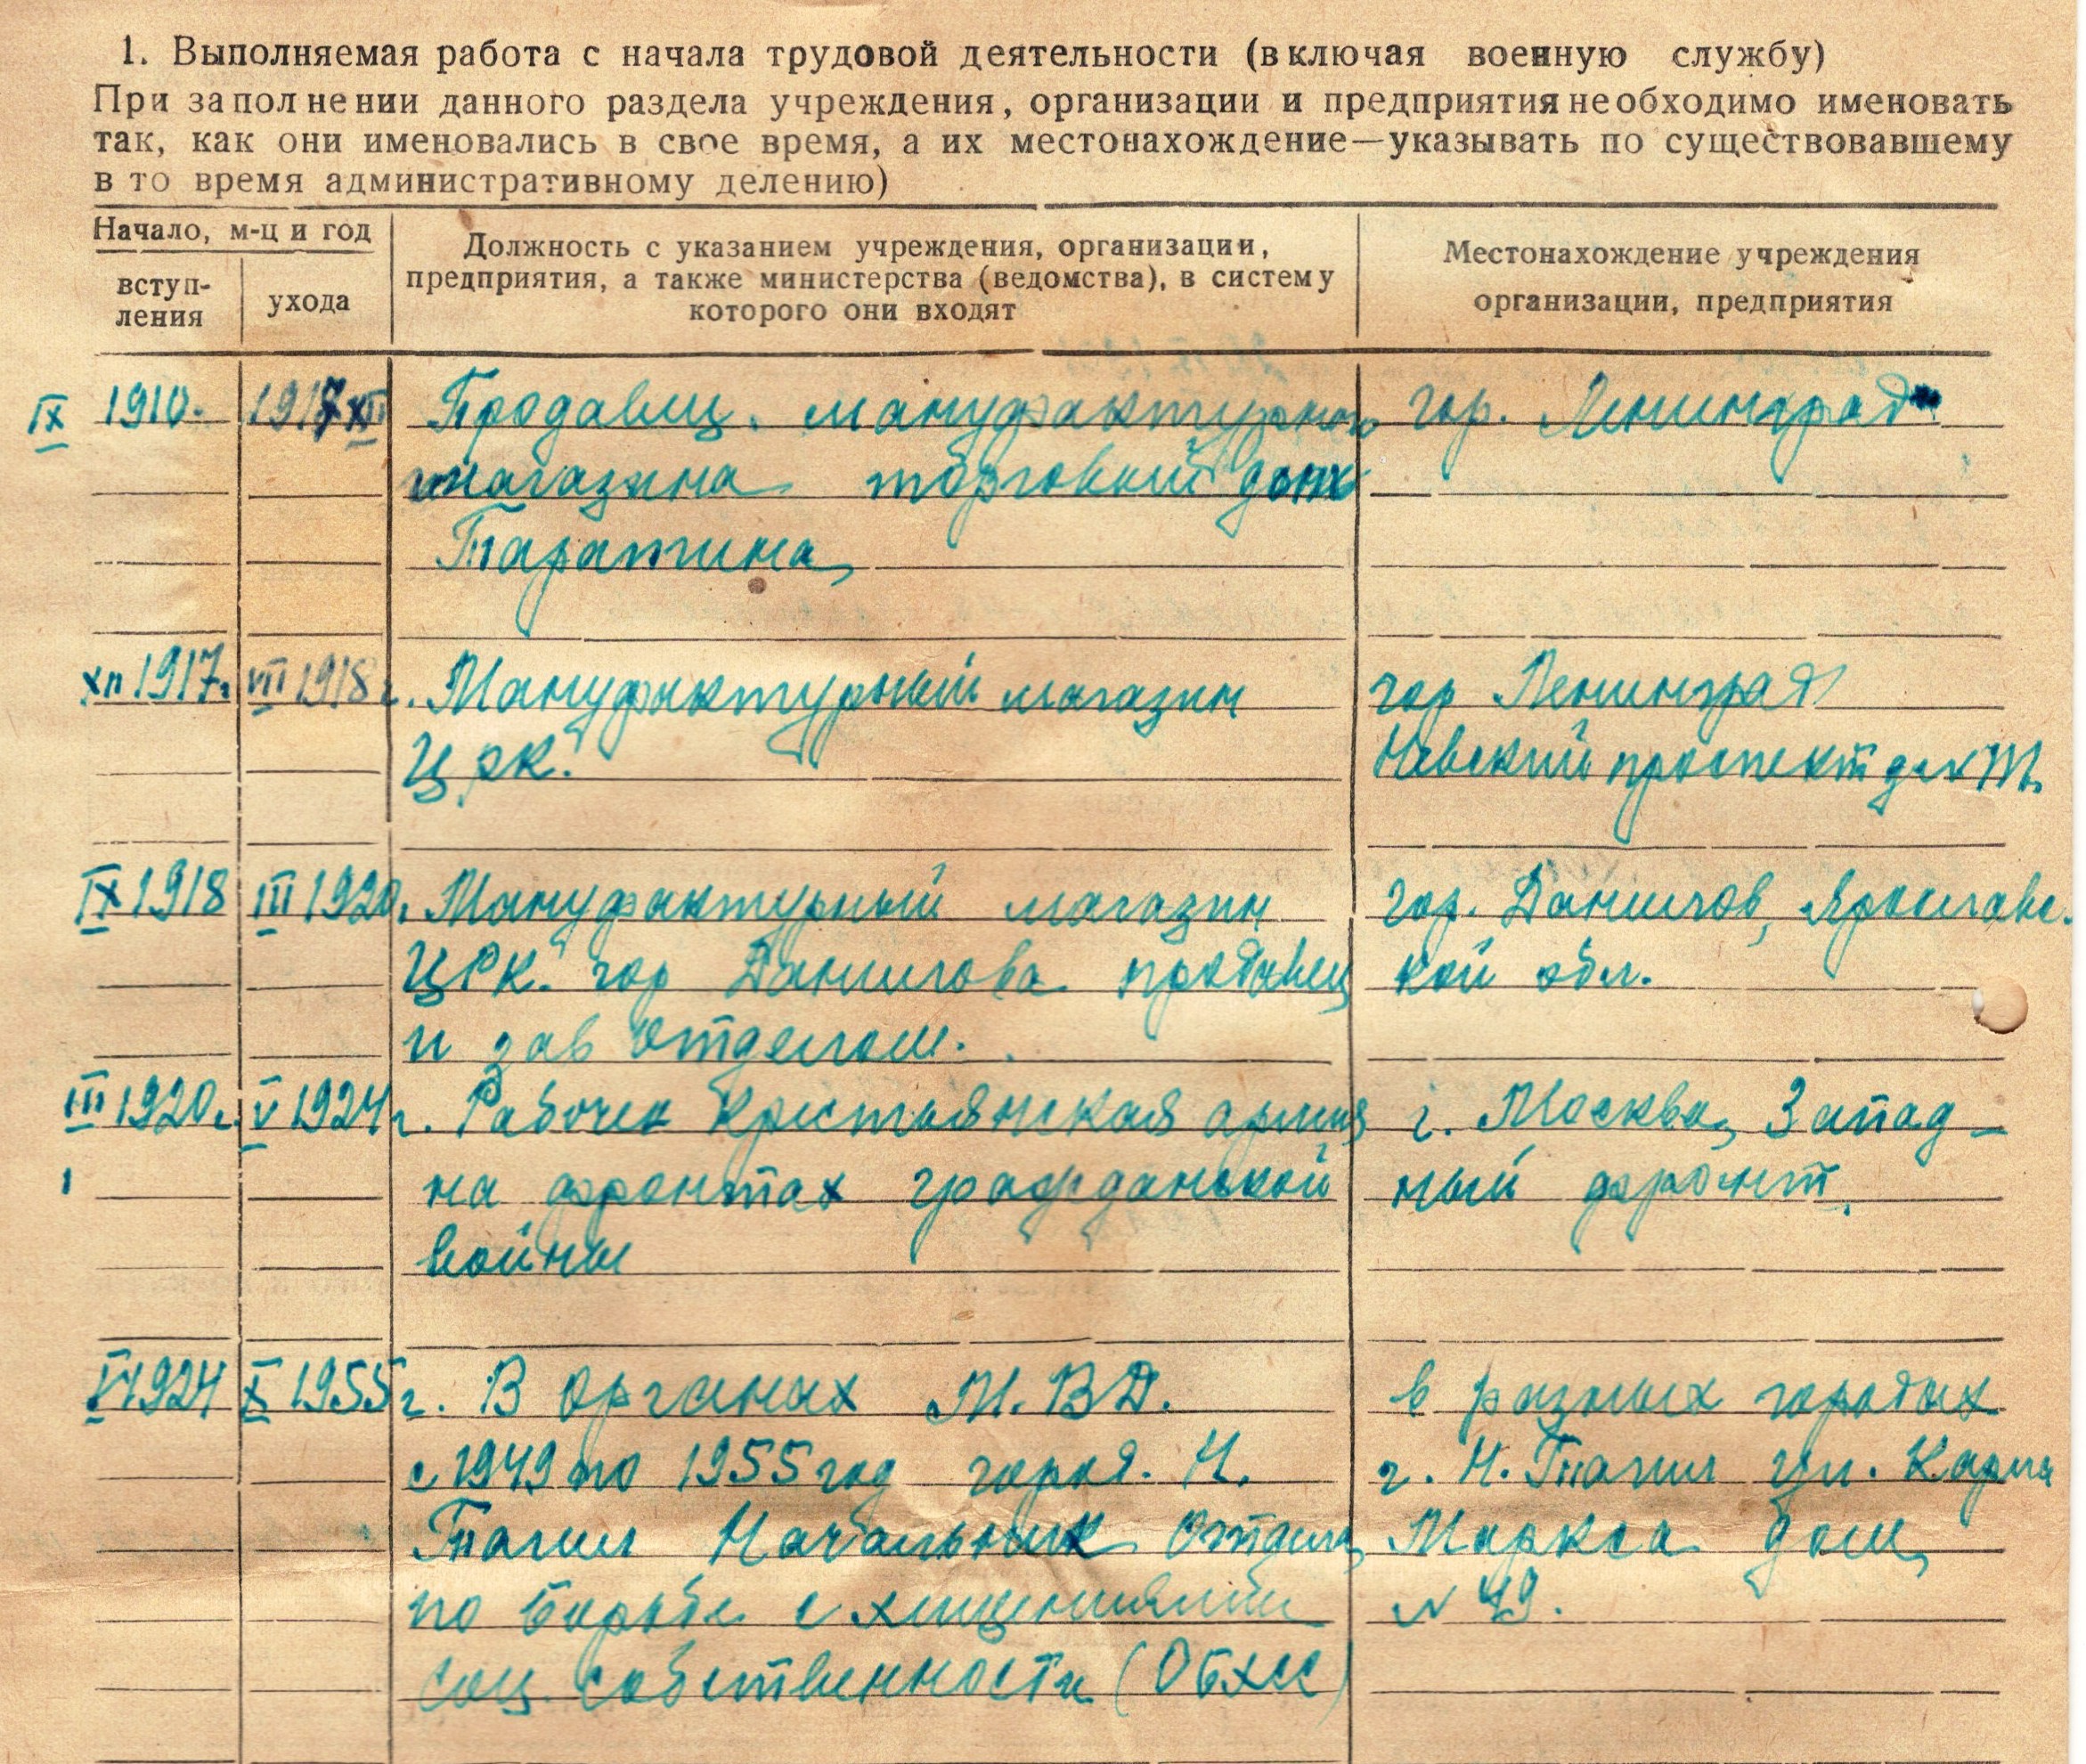 1. Выполняемая работа с начала трудовой деятельности (включая военную службу)
При заполнении данного раздела учреждения, организации и предприятия необходимо именовать
так, как они именовались в свое время, а их местонахождение—указывать по существовавшему
в то время административному делению)
Начало, м-ц и год
вступ-
ления
ухода
Должность с указанием учреждения, организации,
предприятия, а также министерства (ведомства), в систему
которого они входят
Местонахождение учреждения
организации, предприятия
IX 1910. 1917 XII Продавец. мануфактурного гор. Ленинград
магазина торговый дом
Таратина
XII 1917г. VIII 1918г. Мануфактурный магазин гор Ленинград
ЦРК. Невский проспект
IX 1918 III 1920г. Мануфактурный магазин гор. Данилов, Ярославс.
ЦРК. гор Данилова продавец кой обл.
и зав отделом.
III 1920г. V 1924г. Рабоче Крестьянская армия г. Москва, Запад-
на фронтах гражданской ный фронт.
войны
V 1924 X 1955г. В органах М.ВД. в разных городах
с 1949 по 1955 год город. Н. г. Н. Тагил ул. Карла
Тагил Начальник Отдела Маркса дом
по борьбе с хищениями N 49.
соц. собственности (ОБХСС)